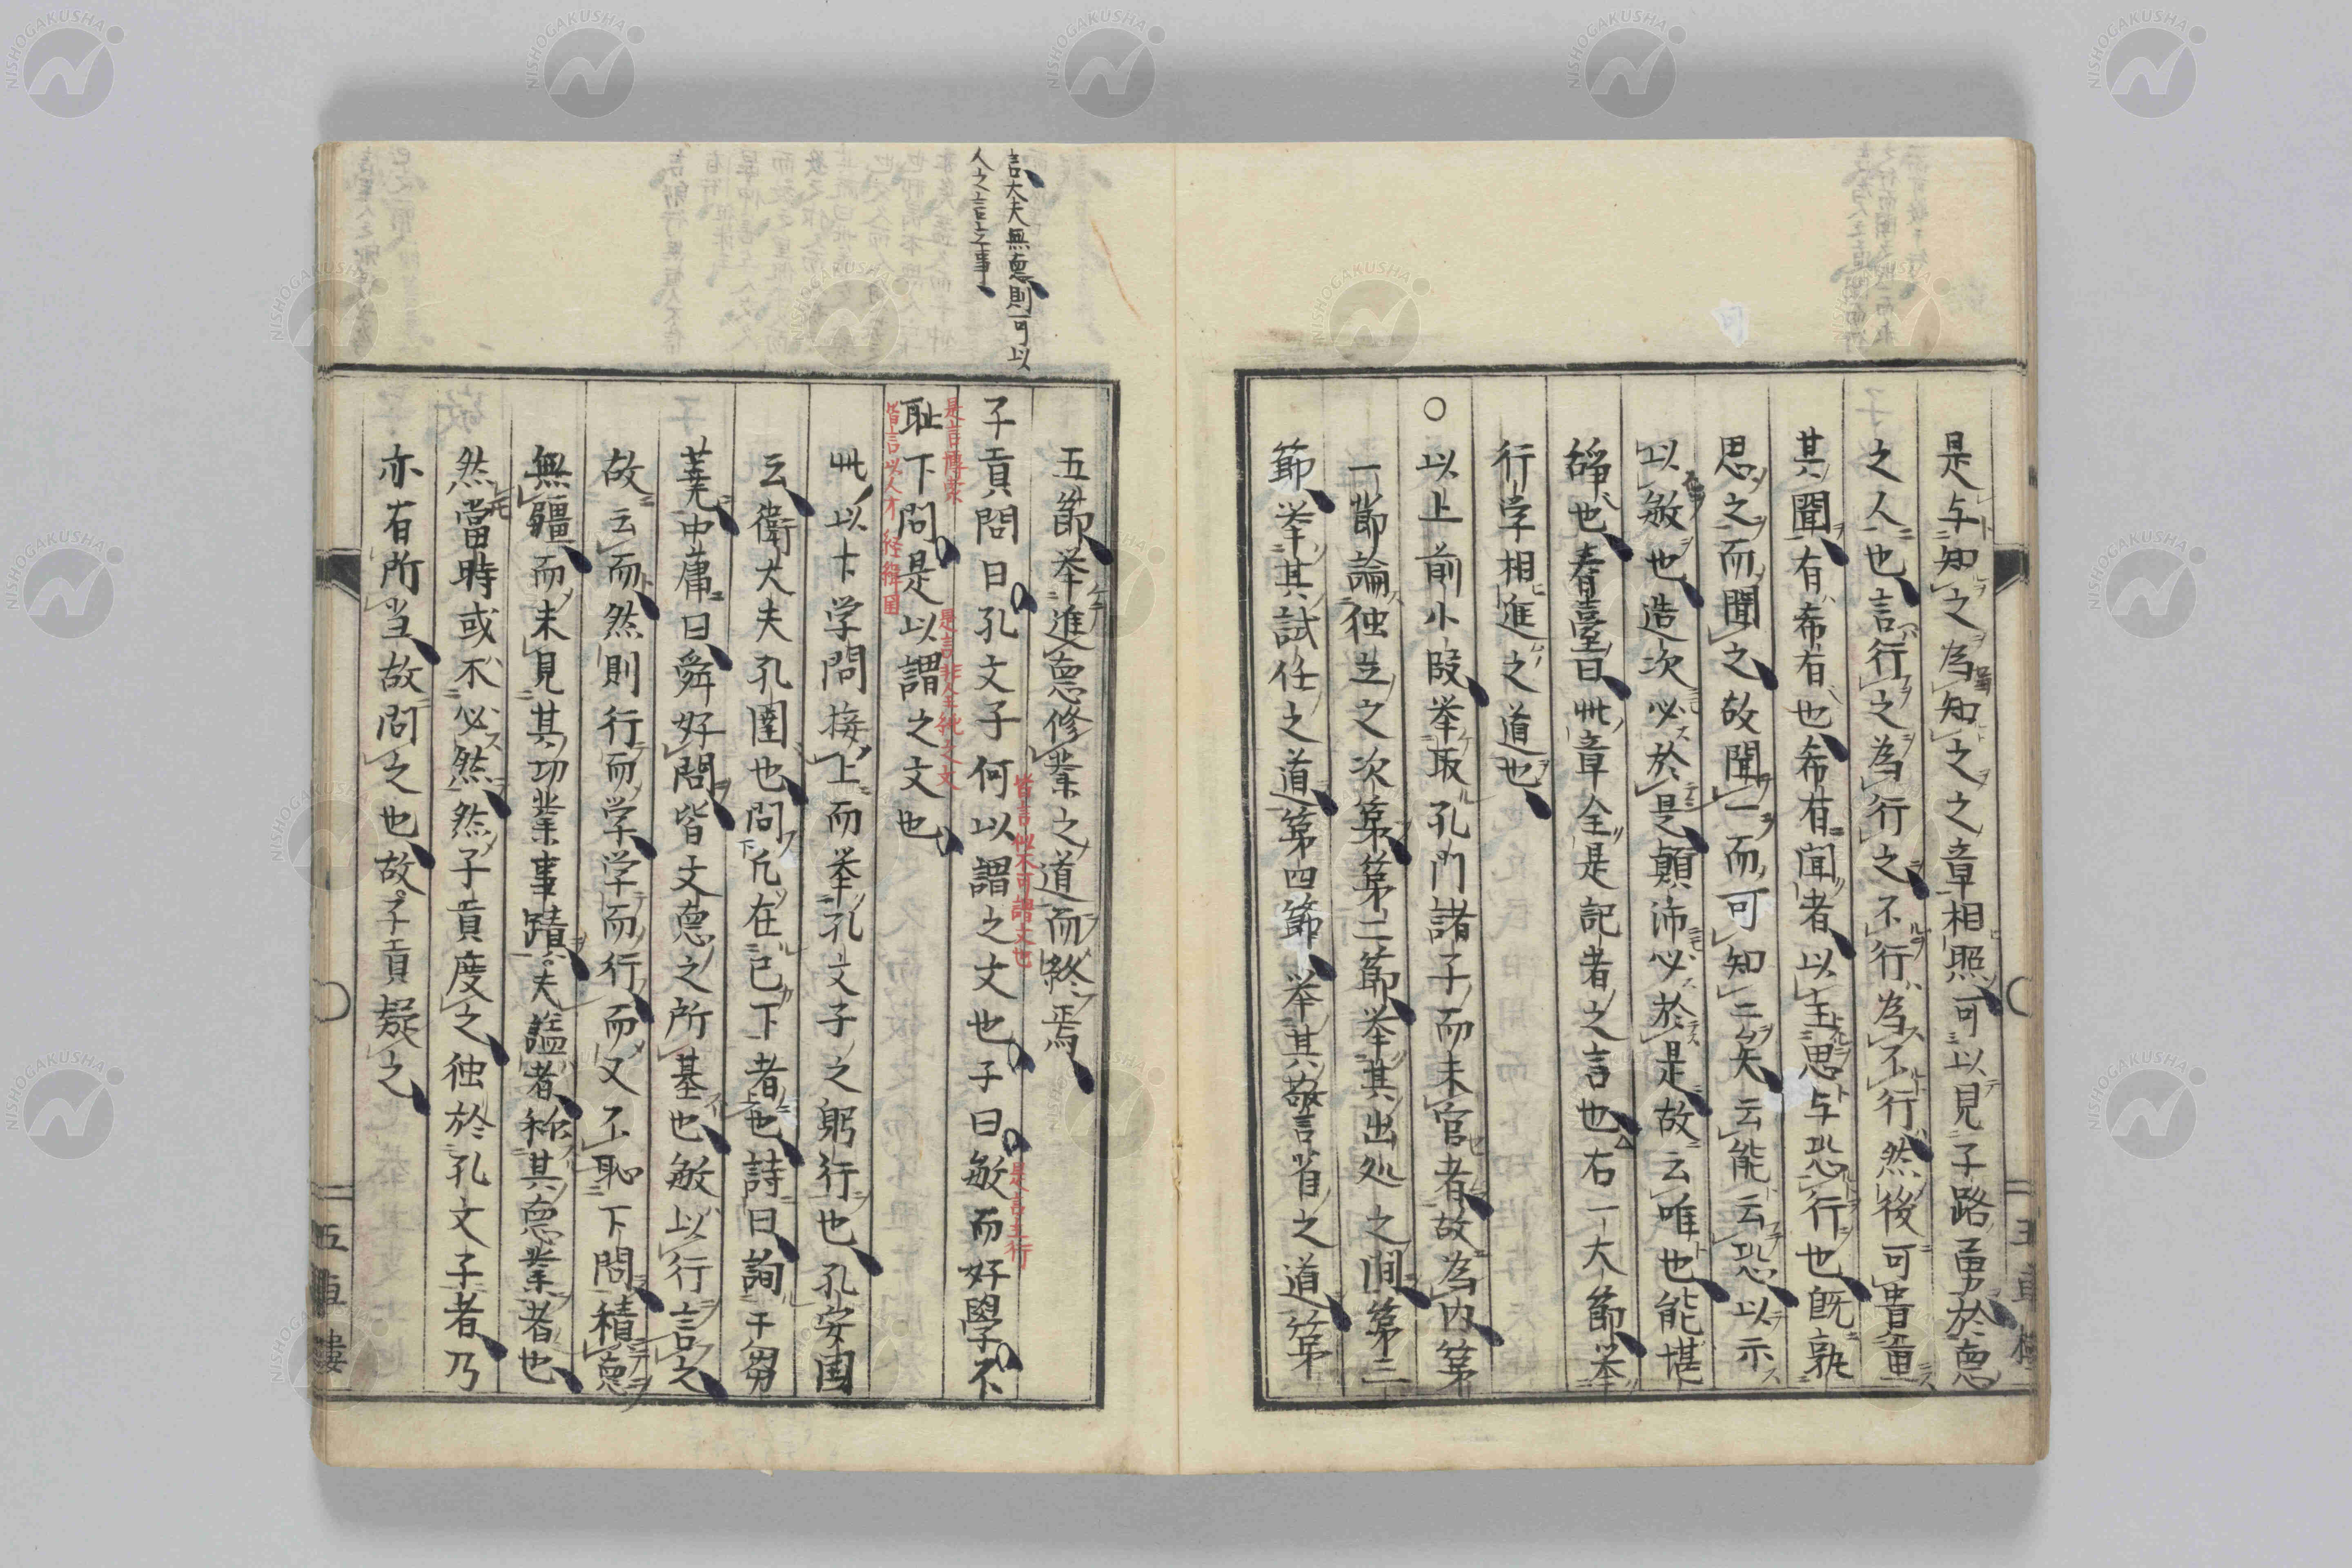 是与知之為知之之章相照可以見子路勇於徳
之人也言行之為行之不行為不行然後可書童
其聞有希有也希有聞者以主思与恐行也既孰
思之而聞之故聞一而可知二矣云能云恐以示
以敏也造次必於是顛沛必於是故云唯也能堪
諍也春臺曰此章全是記者之言也右一大節挙
行学相進之道也
○以上前小段挙取孔門諸子而未官者故為内第
一節論独立之次第第二節挙其出処之間第三
節挙其試任之道第四節挙其敬言省之道第
五節挙進徳修業之道而終焉
言大夫無徳則可以
人之言之事
子貢問曰孔文子何以謂之文也子曰敏而好學不
皆言似不可謂文也
是言主行
恥下問是以謂之文也
是言博衆
是言非全純之文
皆言以人才経緯国
此以下学問接上而挙孔文子之躬行也孔安国
云衛大夫孔圉也問凡在己下者也詩曰詢于芻
蕘中庸曰舜好問皆文徳之所基也敏以行言之
故云而然則行而学学而行而又不恥下問積徳
無疆而未見其功業事蹟夫諡者称其徳業者也
然當時或不必然然子貢度之独於孔文子者乃
亦有所当故問之也故子貢疑之
五車樓
NISHOGAKUSHA